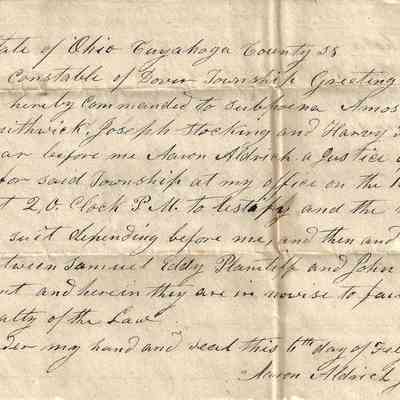 tate of Ohio Cuyahoga County SS
Constable of Dover Township Greeting
hereby Commanded to Subphoena Amos
uthwick, Joseph Hocking and Harvy
ar before me Aaron Aldrich a Justice
for said Township at my office on the
t 2,O. Clock P.M. to testify and the
suit depending before me, and then and
etween Samuel Eddy Plaintiff and John
nt and herein they are in nowise to fail
alty of the Law
der my hand and seal this 6th day of Feb
Aaron Aldrich J